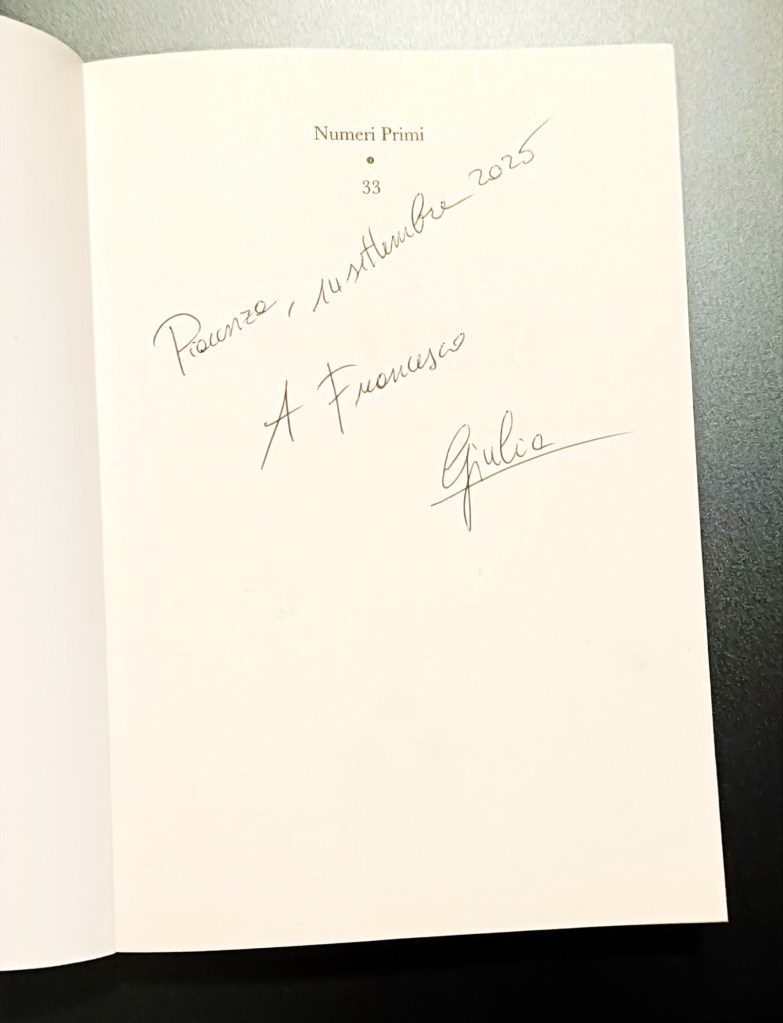 Numeri Primi
33
Piacenza, 14 settembre 2025
A Francesco
Giulia